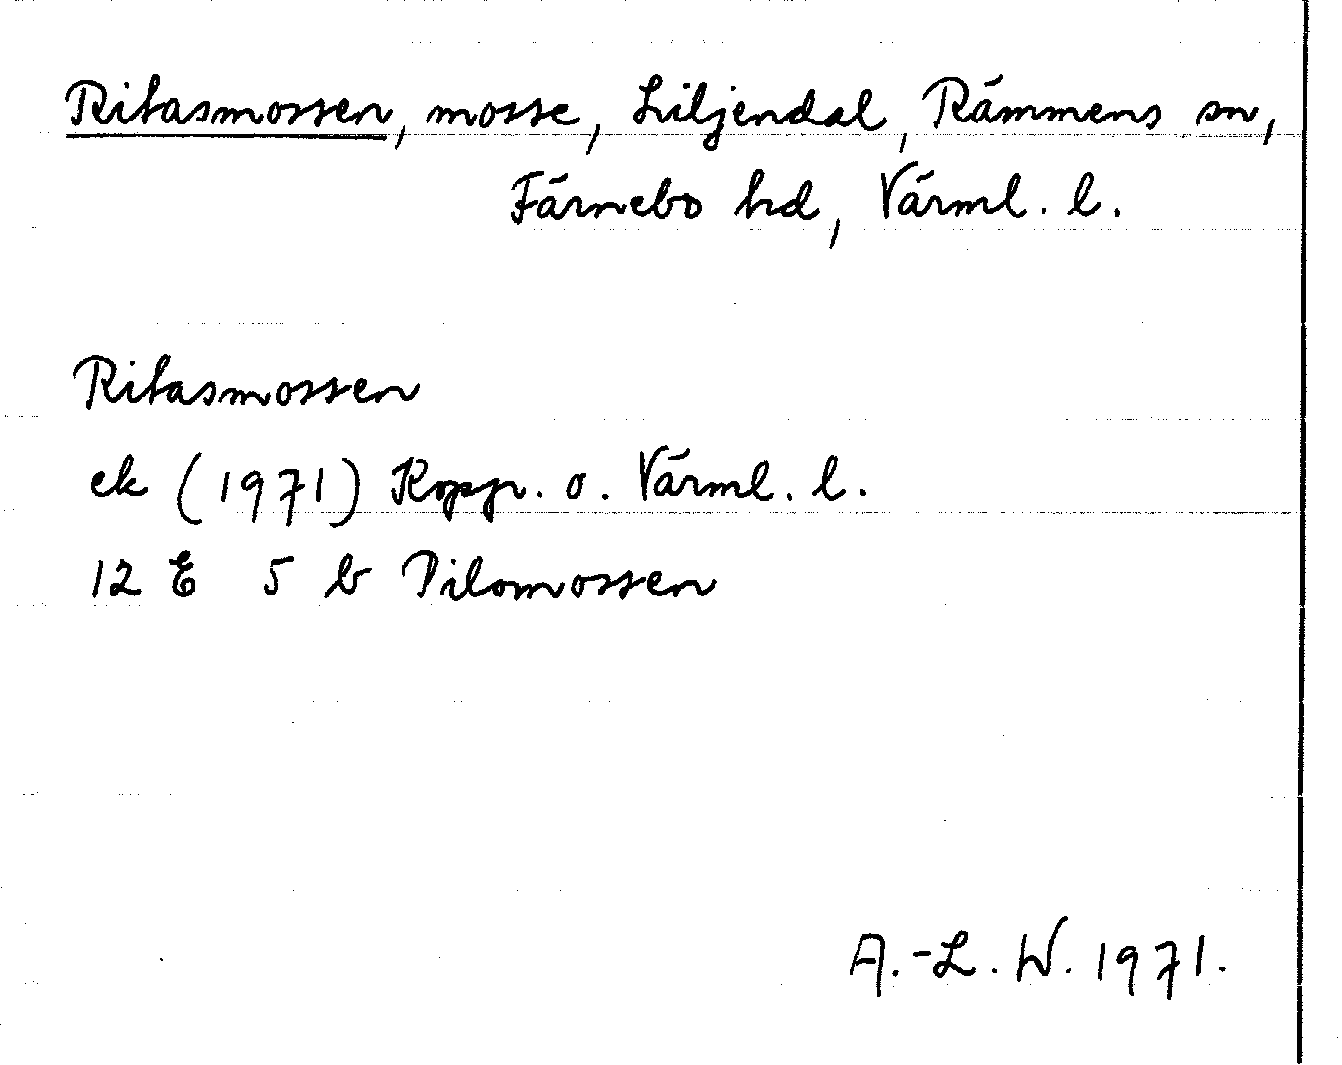 Ritasmossen, mosse, Liljendal, Rämmens sn,
Färnebo hd, Värml. l.
Ritasmossen
ek (1971) Kopp. o. Värml. l.
12 E 5 b Pilomossen
A.-L. W. 1971.